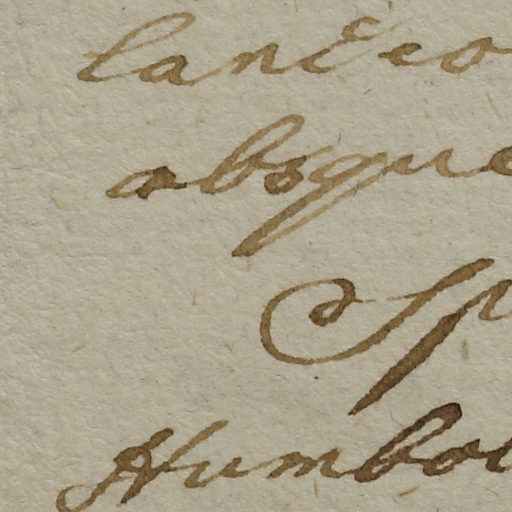 lanceo
absque
Sp
Humbol